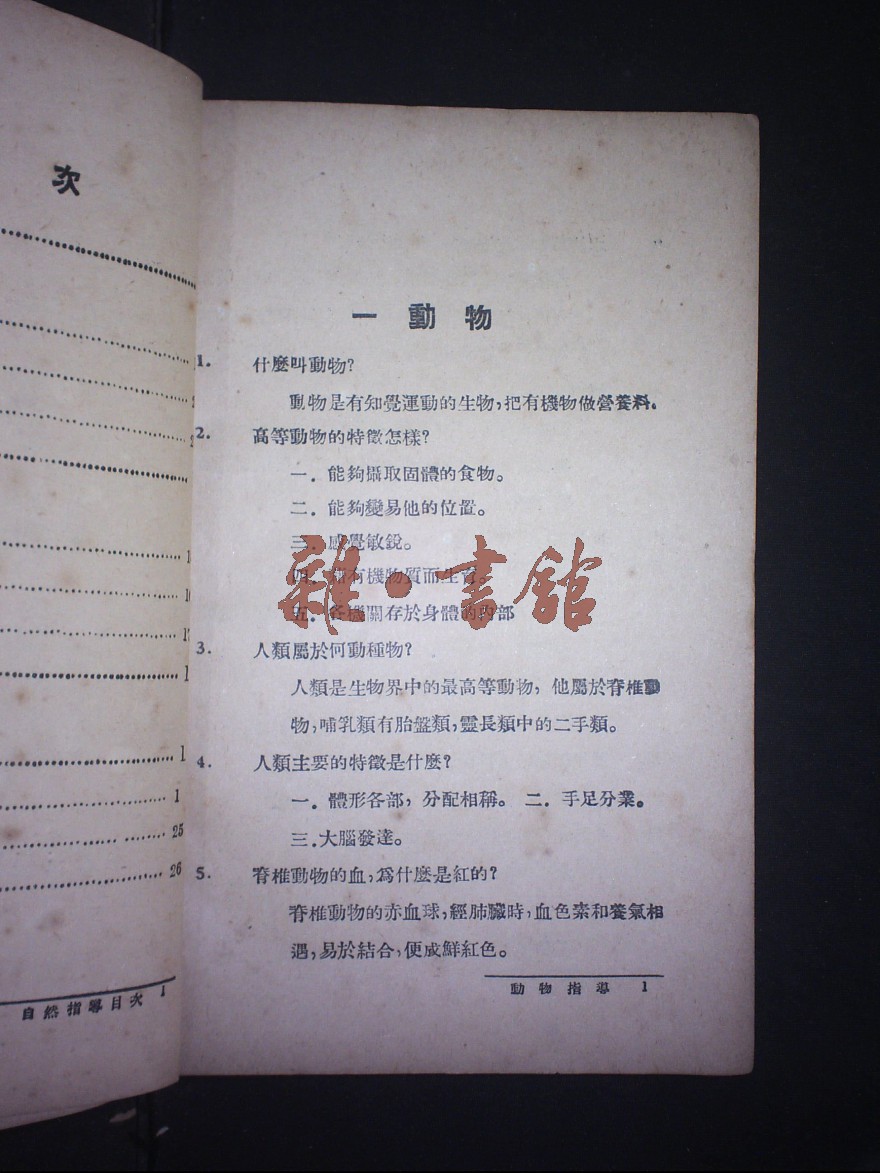 次
1
16
17
1
1
1
25
26
自然指導目次 1
一 動物
1. 什麼叫動物?
動物是有知覺運動的生物,把有機物做營養料。
2. 高等動物的特徵怎樣?
一.能夠攝取固體的食物。
二.能夠變易他的位置。
三.感覺敏銳。
四.藉有機物質而生育。
五.各機關存於身體的內部
3. 人類屬於何動種物?
人類是生物界中的最高等動物,他屬於脊椎動
物,哺乳類有胎盤類,靈長類中的二手類。
4. 人類主要的特徵是什麼?
一.體形各部,分配相稱。 二.手足分業。
三.大腦發達。
5. 脊椎動物的血,爲什麼是紅的?
脊椎動物的赤血球,經肺臟時,血色素和養氣相
遇,易於結合,便成鮮紅色。
動物指導 1
雜·書館